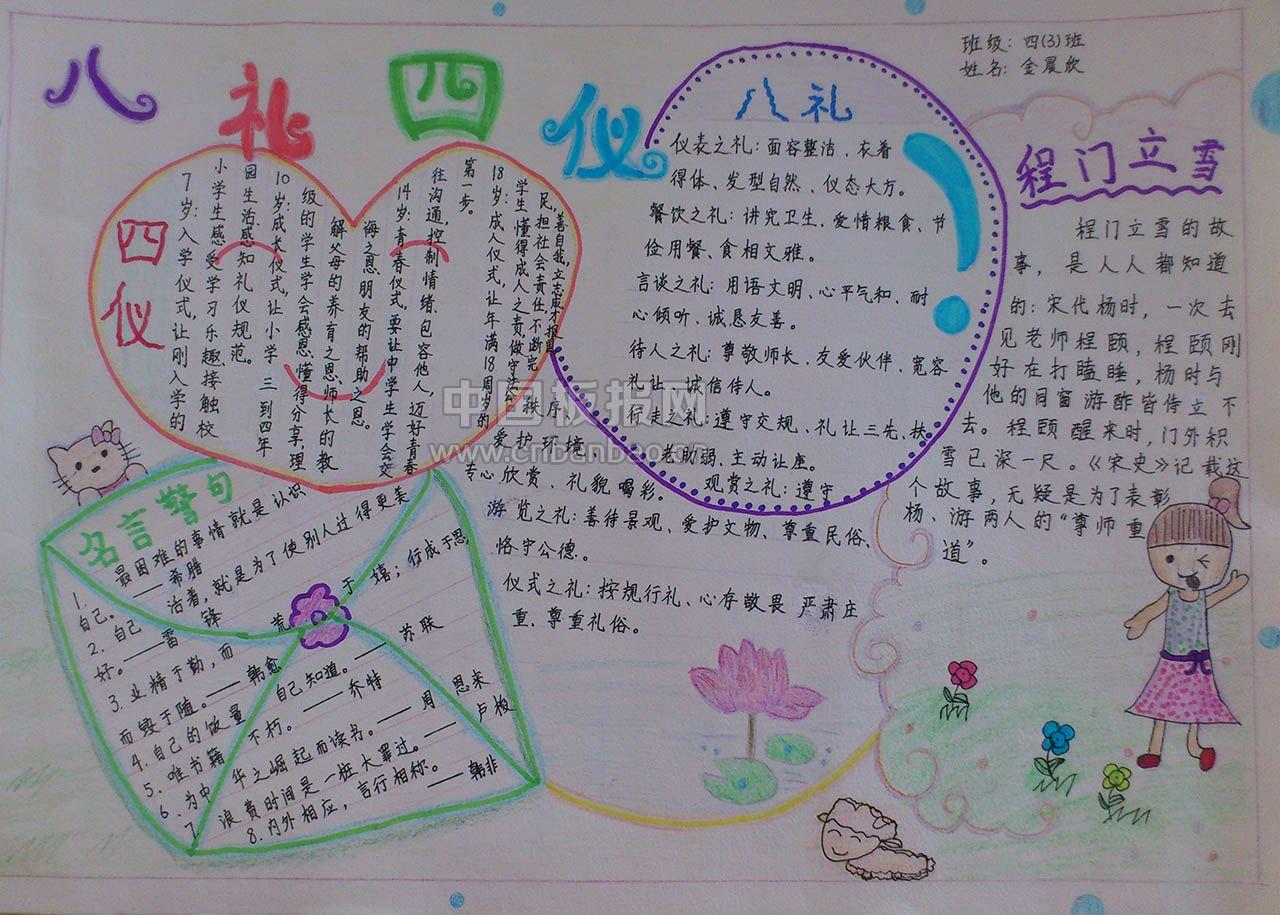 八礼四仪
班级：四(3)班
姓名：金晨欣
四仪
7岁：入学仪式，让刚入学的
小学生感受学习乐趣、接触校
园生活、感知礼仪规范。
10岁：成长仪式，让小学三到四年
级的学生学会感恩、懂得分享，理
解父母的养育之恩、师长的教
诲之恩、朋友的帮助之恩。
14岁：青春仪式，要让中学生学会交
往沟通、控制情绪、包容他人，迈好青春
第一步。
18岁：成人仪式，让年满18周岁的
学生懂得成人之责，做守法公
民，担社会责任，不断完
善自我，立志成才报国
八礼
仪表之礼：面容整洁、衣着
得体、发型自然、仪态大方。
餐饮之礼：讲究卫生、爱惜粮食、节
俭用餐、食相文雅。
言谈之礼：用语文明、心平气和、耐
心倾听、诚恳友善。
待人之礼：尊敬师长、友爱伙伴、宽容
礼让、诚信待人。
行走之礼：遵守交规、礼让三先、扶
老助弱、主动让座。
观赏之礼：遵守
秩序、
爱护环境、
专心欣赏、礼貌喝彩。
游览之礼：善待景观、爱护文物、尊重民俗、
恪守公德。
仪式之礼：按规行礼、心存敬畏 严肃庄
重、尊重礼俗。
程门立雪
程门立雪的故
事，是人人都知道
的：宋代杨时，一次去
见老师程颐，程颐刚
好在打瞌睡，杨时与
他的同窗游酢皆侍立不
去。程颐醒来时，门外积
雪已深一尺。《宋史》记载这
个故事，无疑是为了表彰
杨、游两人的“尊师重
道”。
名言警句
1. 最困难的事情就是认识
自己。——希腊
2. 自己活着，就是为了使别人过得更美
好。——雷锋
3. 业精于勤，而荒于嬉；行成于思，
而毁于随。——韩愈
4. 自己的做量自己知道。——苏联
5. 唯书籍不朽。——乔特
6. 为中华之崛起而读书。——周恩来
7. 浪费时间是一桩大罪过。——卢梭
8. 内外相应，言行相称。——韩非
中国板报网
www.cnbanbao.cn